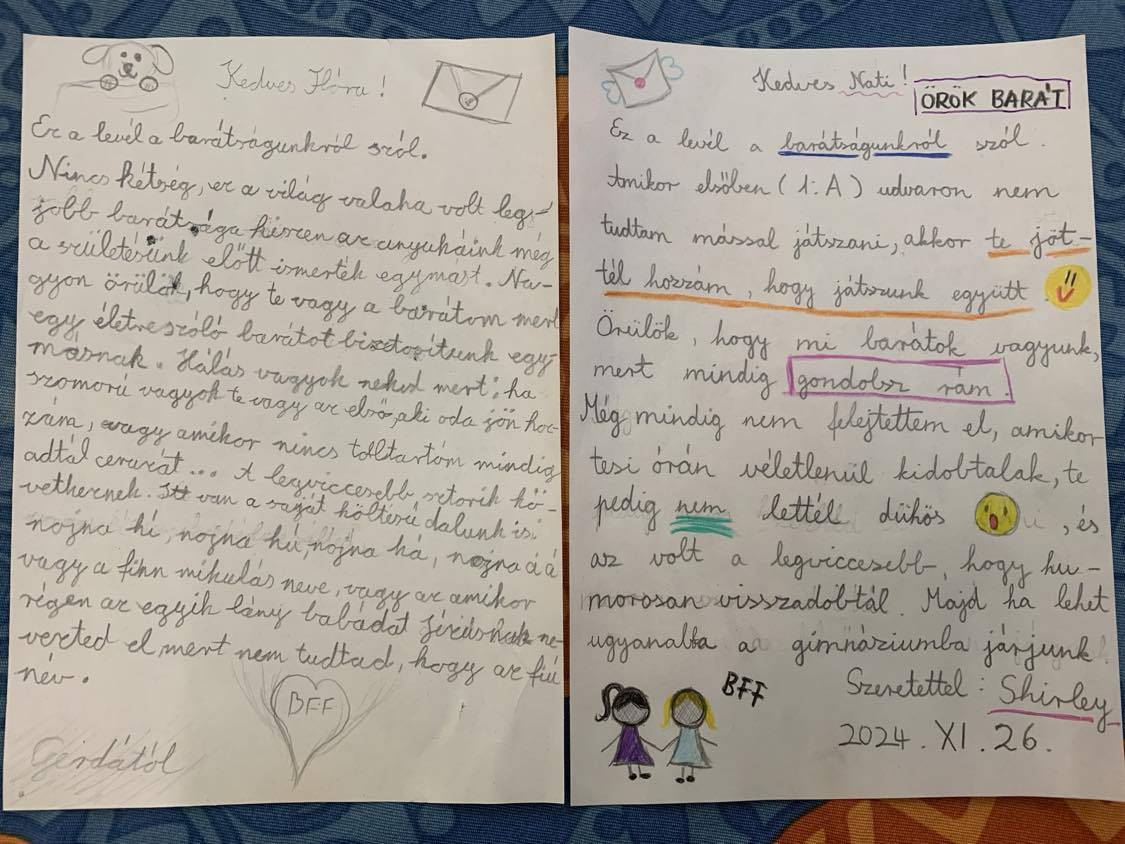 Kedves Flóra!
Ez a levél a barátságunkról szól.
Nincs kétség, ez a világ valaha volt leg-
jobb barátsága hiszen az anyukáink még
a születésünk előtt ismerték egymást. Na-
gyon örülök, hogy te vagy a barátom mert
egy életre szóló barátot biztosítunk egy-
másnak. Hálás vagyok neked mert: ha
szomorú vagyok te vagy az első, aki oda jön hoz-
zám, vagy amikor nincs tolltartóm mindig
adtál ceruzát... A legviccesebb sztorik kö-
vetkeznek. Itt van a saját költésű dalunk is:
nojna hi, nojna hú, nojna há, nojna á á
vagy a finn mikulás neve, vagy az amikor
régen az egyik lány babádat Jézusnak ne-
vezted el, mert nem tudtad, hogy az fiú
név.
BFF
Gerdától
Kedves Nati!
ÖRÖK BARÁT
Ez a levél a barátságunkról szól.
Amikor elsőben (1.A) udvaron nem
tudtam mással játszani, akkor te jöt-
tél hozzám, hogy játszunk együtt.
Örülök, hogy mi barátok vagyunk,
mert mindig gondolsz rám.
Még mindig nem felejtettem el, amikor
tesi órán véletlenül kidobtalak, te
pedig nem lettél dühös, és
az volt a legviccesebb, hogy hu-
morosan visszadobtál. Majd ha lehet
ugyanabba a gimnáziumba járjunk.
Szeretettel: Shirley
BFF
2024. XI. 26.